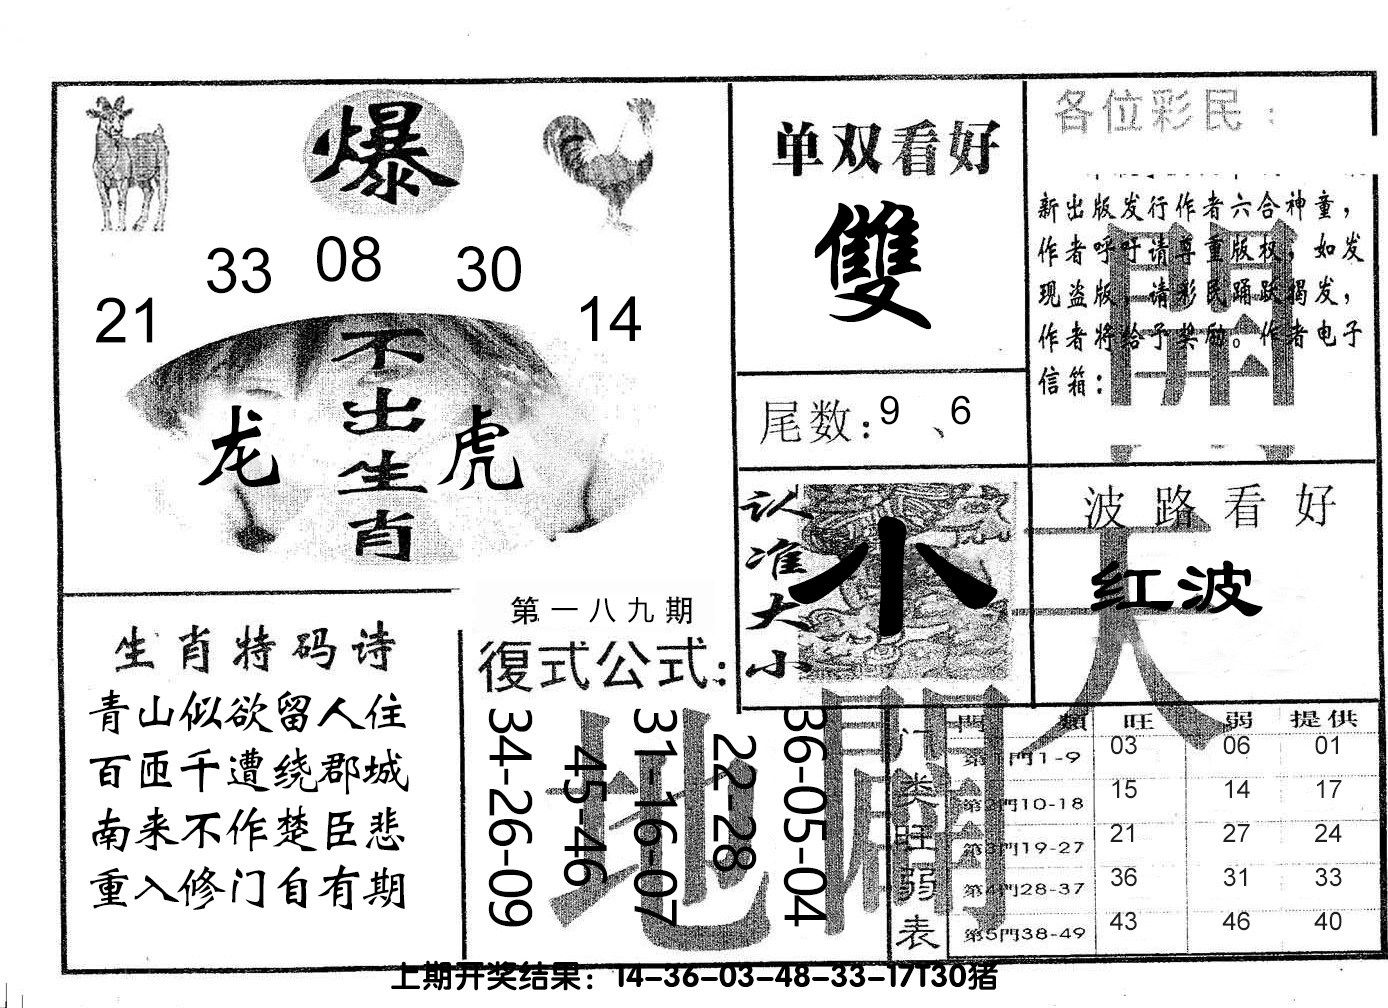 爆
33 08 30
21 14
不出生肖
龙 虎
单双看好
雙
尾数:9、6
认准大小
小
各位彩民:
新出版发行作者六合神童,
作者呼吁请尊重版权,如发
现盗版,请彩民踊跃揭发,
作者将给予奖励。作者电子
信箱:
開
波路看好
红波
天
生肖特码诗
青山似欲留人住
百匝千遭绕郡城
南来不作楚臣悲
重入修门自有期
第一八九期
復式公式:
34-26-09
45-46
31-16-07
22-28
36-05-04
地 闢
门类旺弱表
門類 旺 弱 提供
第1門1-9 03 06 01
第2門10-18 15 14 17
第3門19-27 21 27 24
第4門28-37 36 31 33
第5門38-49 43 46 40
上期开奖结果:14-36-03-48-33-17T30猪